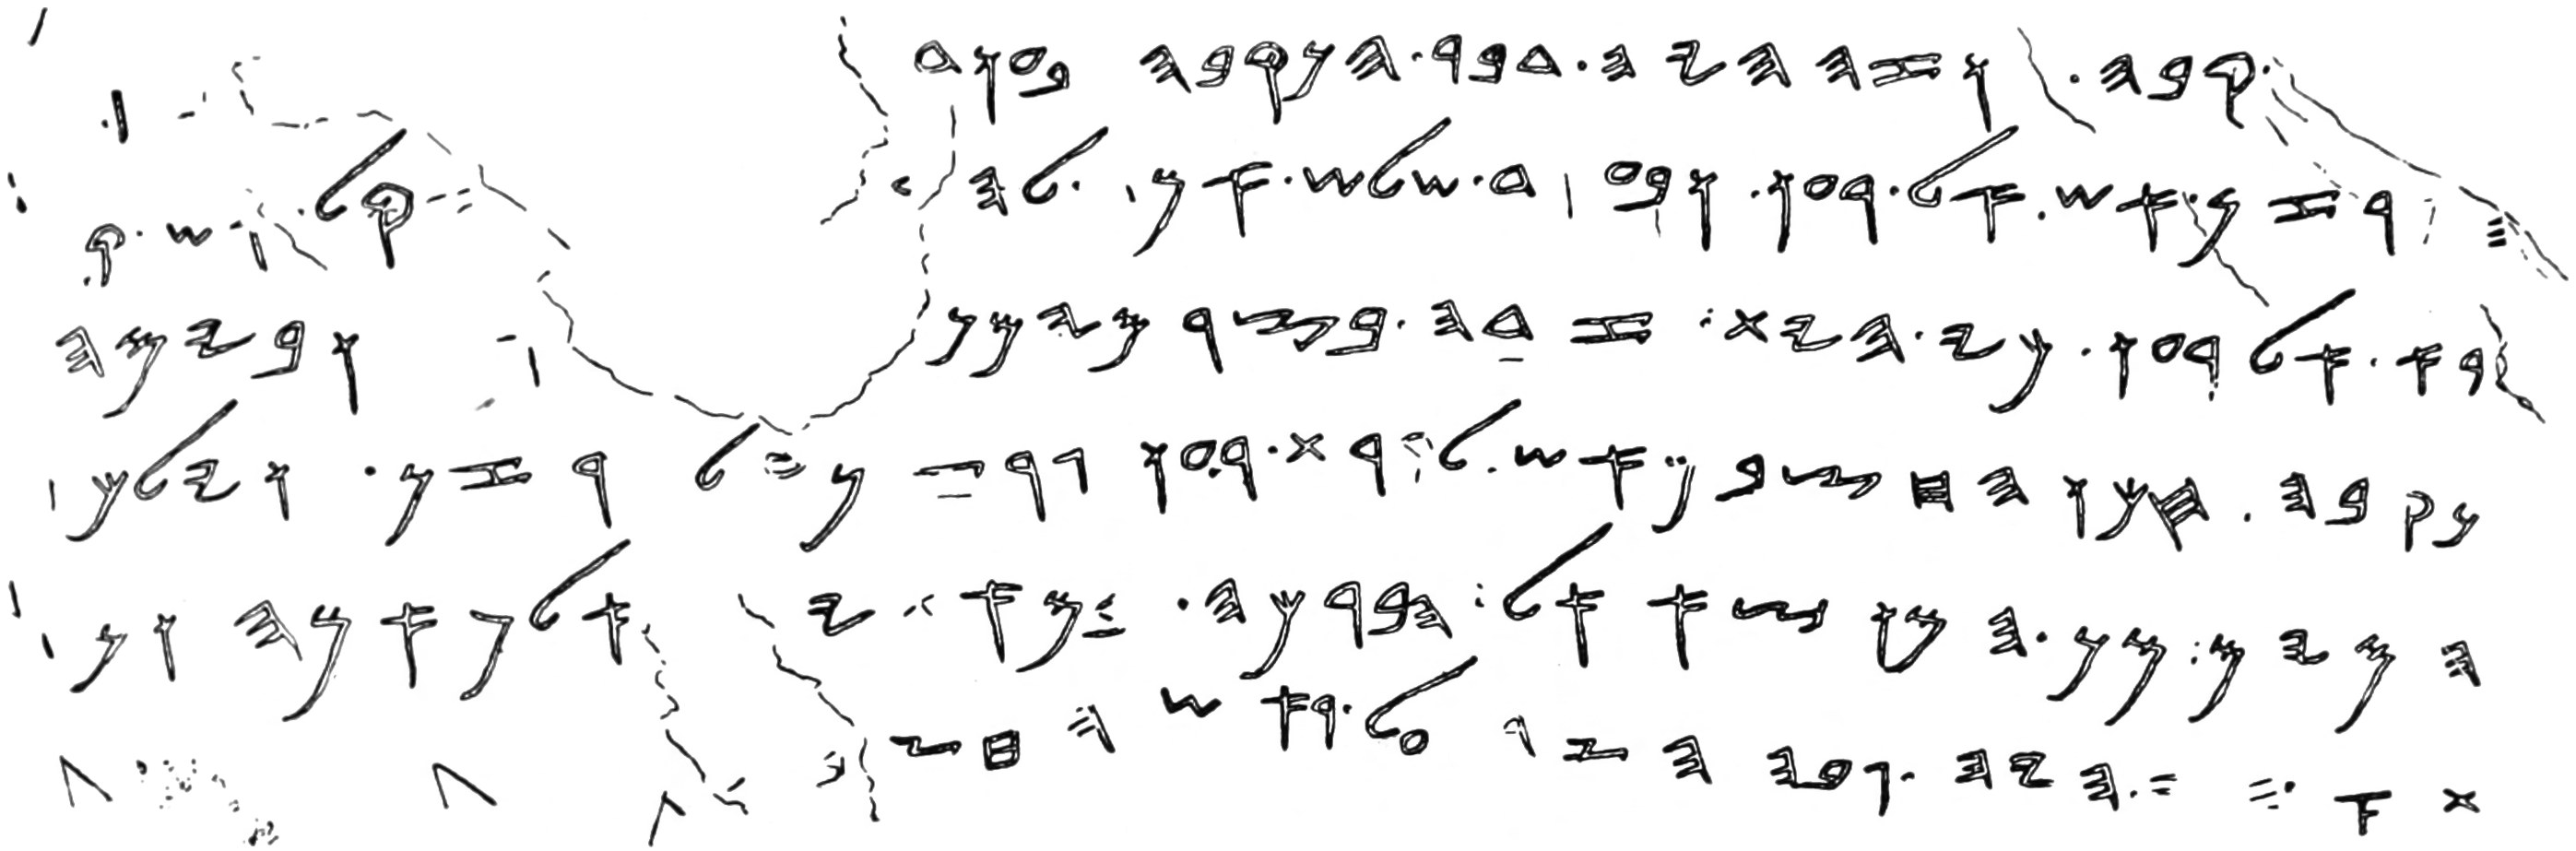 𐤒𐤁𐤄 . 𐤅𐤆𐤄 𐤄𐤉𐤄 . 𐤃𐤁𐤓 . 𐤄𐤍𐤒𐤁𐤄 𐤁𐤏𐤅𐤃
𐤓𐤆𐤍 . 𐤀𐤔 . 𐤀𐤋 . 𐤓𐤏𐤅 . 𐤅𐤁𐤏𐤅𐤃 . 𐤔𐤋𐤔 . 𐤀𐤌 . 𐤋𐤄 𐤒𐤋 . 𐤀𐤔 . 𐤒
𐤓𐤀 . 𐤀𐤋 𐤓𐤏𐤅 . 𐤊𐤉 . 𐤄𐤉𐤕 . 𐤆𐤃𐤄 . 𐤁𐤑𐤓 𐤌𐤉𐤌𐤍 𐤅𐤁𐤉𐤌 𐤄
𐤍𐤒𐤁𐤄 . 𐤄𐤊𐤅 𐤄𐤇𐤑𐤁𐤌 𐤀𐤔 . 𐤋𐤒𐤓𐤕 . 𐤓𐤏𐤅 𐤂𐤓𐤆𐤍 𐤏𐤋 𐤓𐤆𐤍 . 𐤅𐤉𐤋𐤊𐤅
𐤄𐤌𐤉𐤌 . 𐤌𐤍 . 𐤄𐤌𐤅𐤑𐤀 𐤀𐤋 . 𐤄𐤁𐤓𐤊𐤄 . 𐤁𐤌𐤀𐤕𐤉 𐤀𐤋𐤐 𐤀𐤌𐤄 𐤅𐤌
𐤀𐤕 . 𐤀𐤌𐤄 . 𐤄𐤉𐤄 . 𐤂𐤁𐤄 𐤄𐤑𐤓 𐤏𐤋 . 𐤓𐤀𐤔 𐤄𐤇𐤑𐤁𐤌